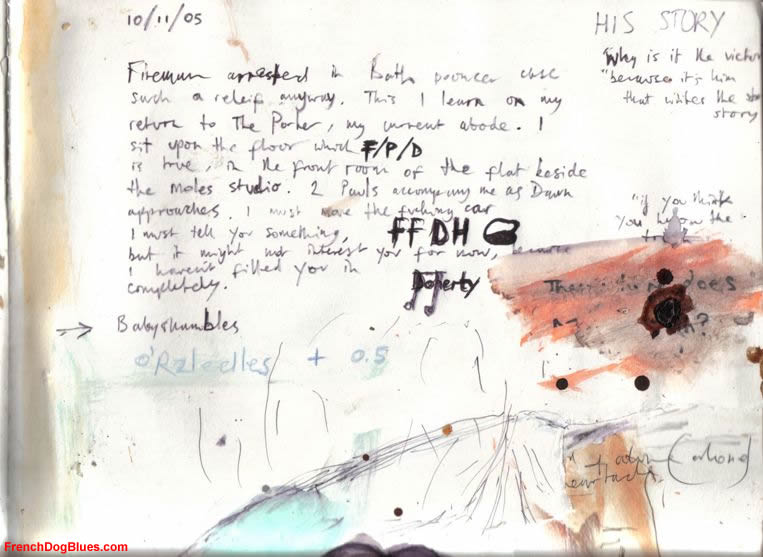 10/11/05
HIS STORY
"Why is it the victor
"because it's him
that writes the
story
Fireman arrested in Bath case
such a releif anyway. This I learn on my
return to The Porter, my current abode. I
sit upon the floor which F/P/D
is true, in the front room of the flat beside
the moles studio. 2 Pauls accompany me as Dawn
approaches. I must move the fucking car
I must tell you something, FFDH
but it might not interest you for now, because
I haven't filled you in
completely. Doherty
"if you think
you know the
does
?
Babyshambles
+ 0.5